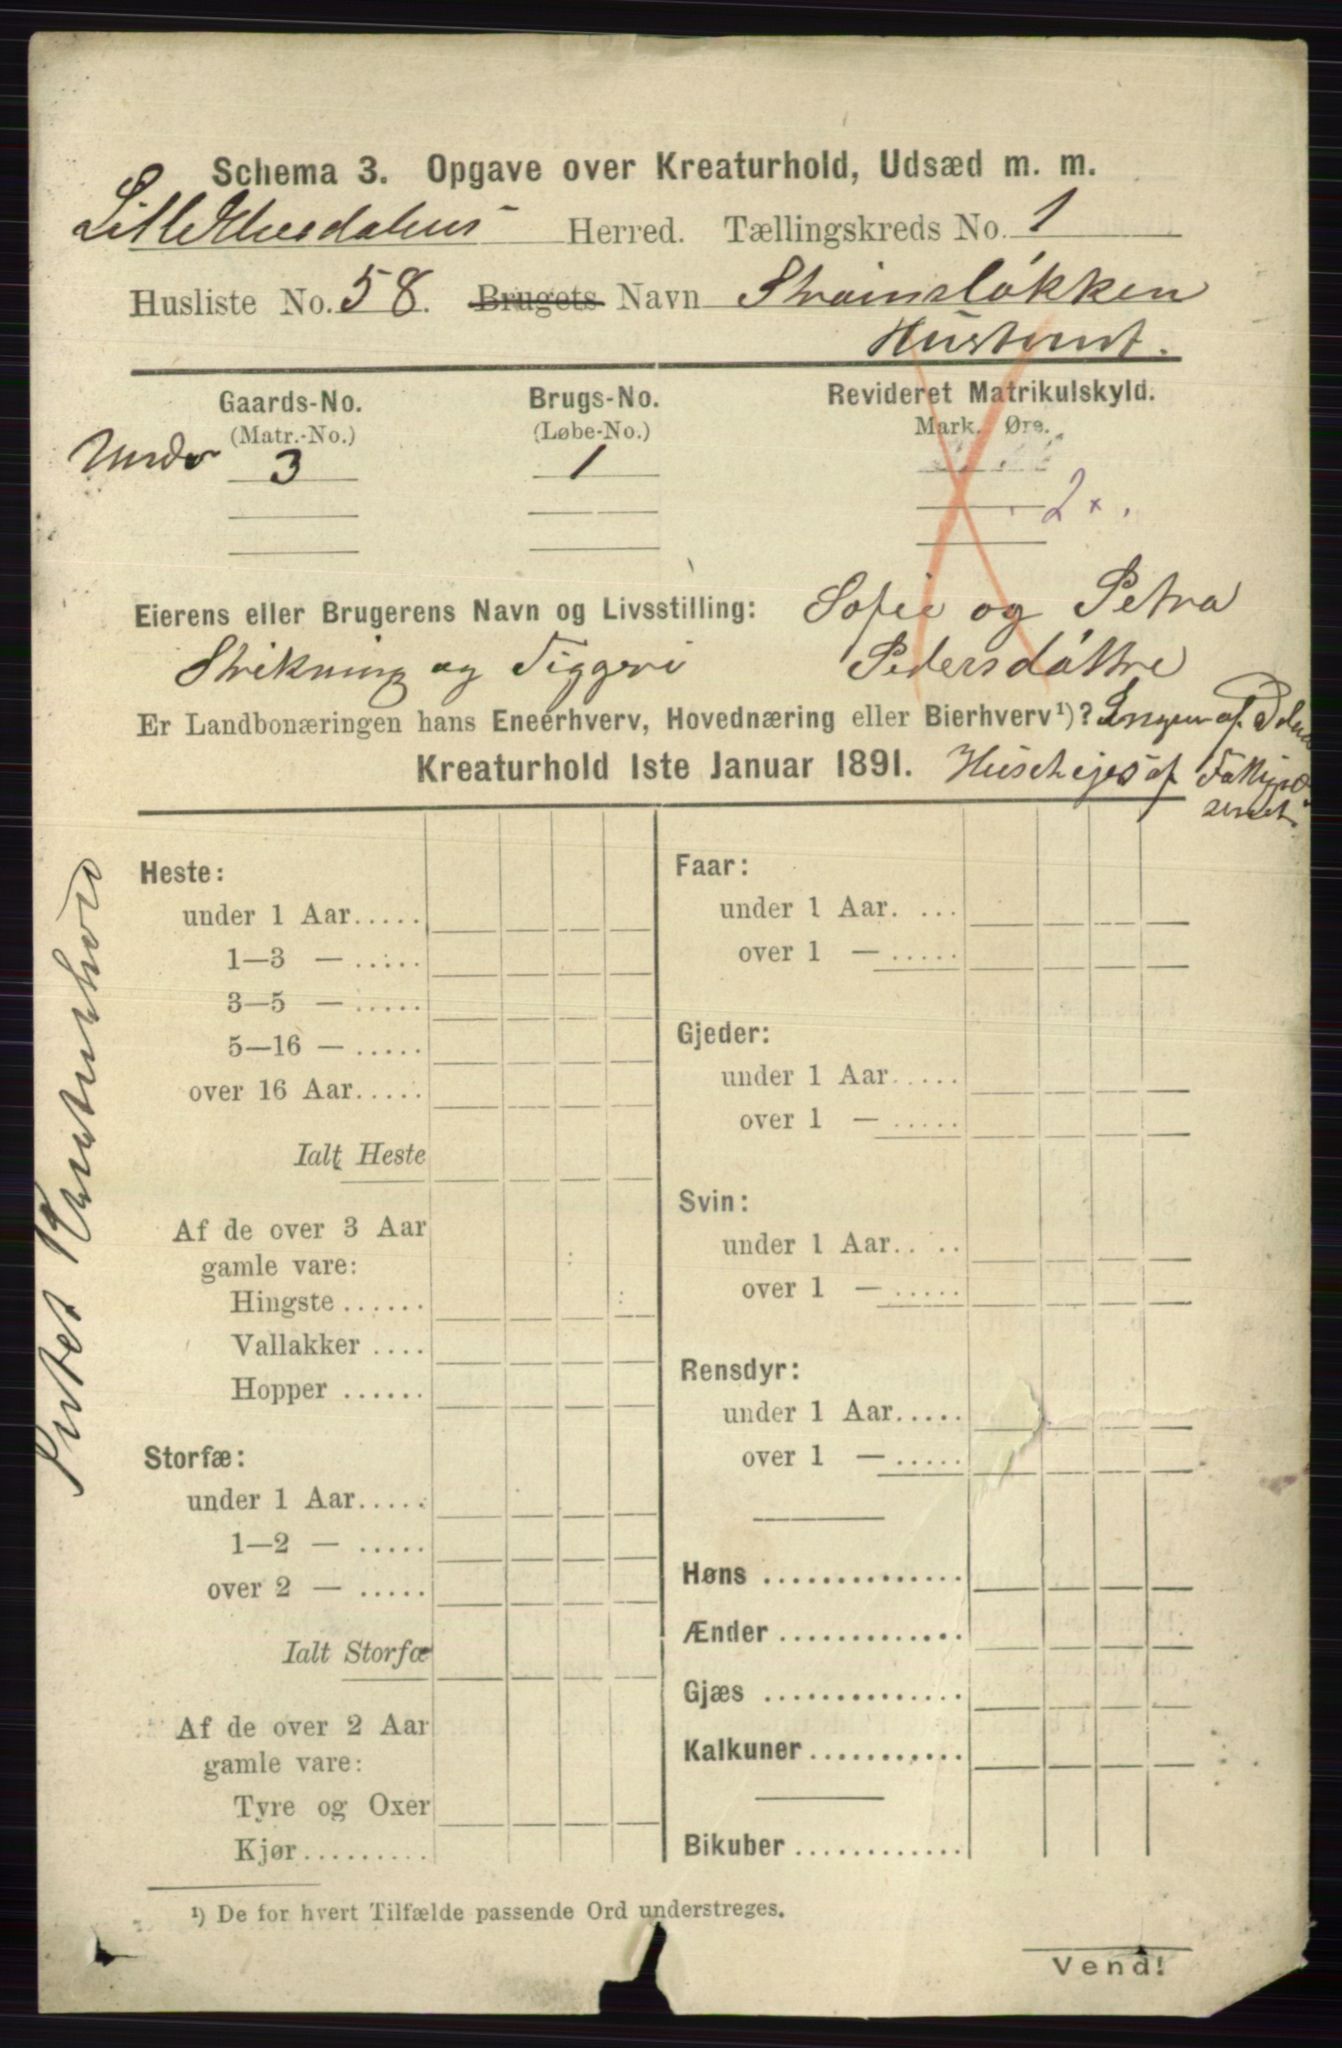 Schema 3. Opgave over Kreaturhold, Udsæd m. m.
Lille Elvedalens Herred. Tællingskreds No. 1
Husliste No. 58. Brugets Navn Strømsløkken
Hustomt.
Gaards-No. Brugs-No. Revideret Matrikulskyld.
(Matr.-No.) (Løbe-No.) Mark. Øre.
Under 3 1
2
Eierens eller Brugerens Navn og Livsstilling: Sofie og Petra
Strikning og Tiggeri Pedersdøttre
Er Landbonæringen hans Eneerhverv, Hovednæring eller Bierhverv¹)? Ingen af
Kreaturhold 1ste Januar 1891. Huset ejes af Fattigvæ
senet.
Intet Kreaturhold
Heste:
under 1 Aar.....
1—3 — .....
3—5 — .....
5—16 — .....
over 16 Aar.....
Ialt Heste
Af de over 3 Aar
gamle vare:
Hingste ......
Vallakker ....
Hopper ......
Storfæ:
under 1 Aar.....
1—2 — .....
over 2 — .....
Ialt Storfæ
Af de over 2 Aar
gamle vare:
Tyre og Oxer
Kjør.........
Faar:
under 1 Aar. ...
over 1 — .....
Gjeder:
under 1 Aar.....
over 1 — .....
Svin:
under 1 Aar.. ..
over 1 — .....
Rensdyr:
under 1 Aar.....
over 1 — .....
Høns ..............
Ænder .............
Gjæs ..............
Kalkuner...........
Bikuber ............
¹) De for hvert Tilfælde passende Ord understreges.
Vend!